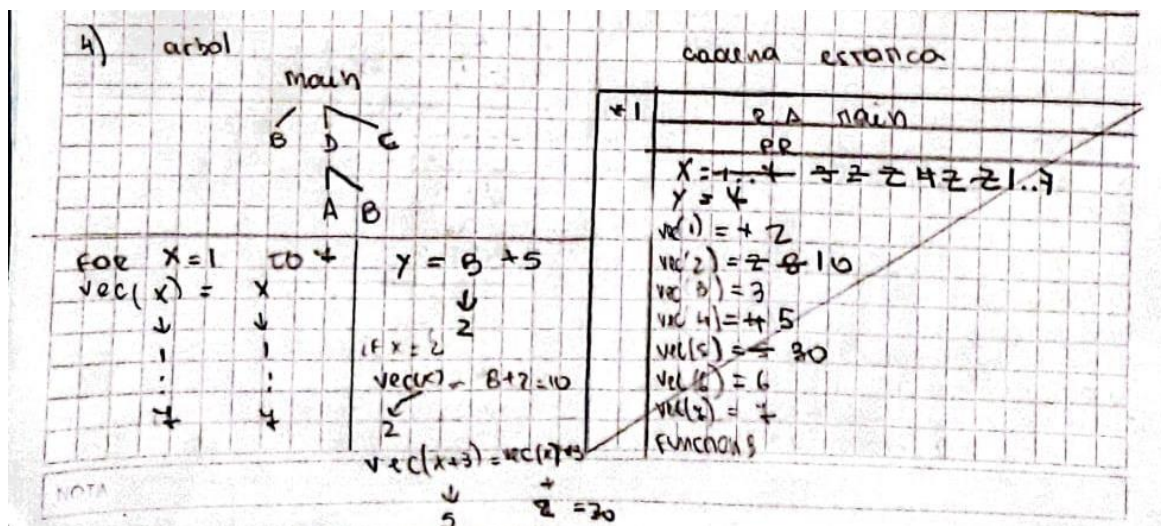 4) arbol
main
B D C
A B
FOR X=1 TO 7
vec(x) = x
↓ ↓
1 1
: :
7 7
Y = B +5
↓
2
IF x = 2
vec(x) = 8+2=10
2
vec(x+3) =
↓
5 2 =30
cadena estatica
*1
R A main
PR
X =
Y = 4
vec(1) = 1 2
vec(2) = 2 8 10
vec(3) = 3
vec(4) = 4 5
vec(5) = 5 30
vec(6) = 6
vec(7) = 7
Functions
NOTA